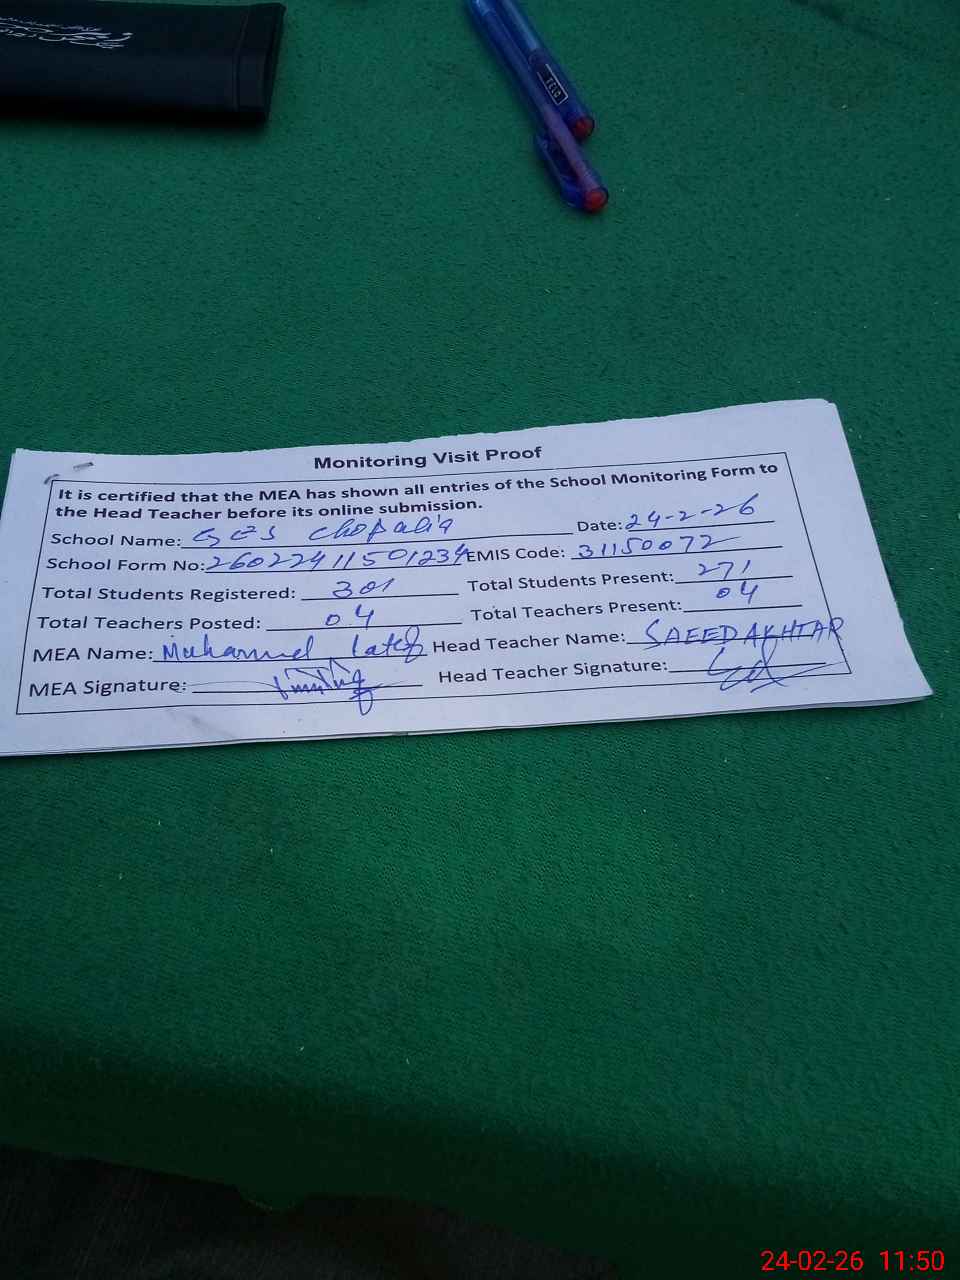 TELO
Monitoring Visit Proof
It is certified that the MEA has shown all entries of the School Monitoring Form to
the Head Teacher before its online submission.
School Name: GES Chopalia Date: 24-2-26
School Form No: 26022411501234 EMIS Code: 31150072
Total Students Registered: 301 Total Students Present: 271
Total Teachers Posted: 04 Total Teachers Present: 04
MEA Name: Muhammad Latif Head Teacher Name: SAEED AKHTAR
MEA Signature: Head Teacher Signature:
24-02-26 11:50